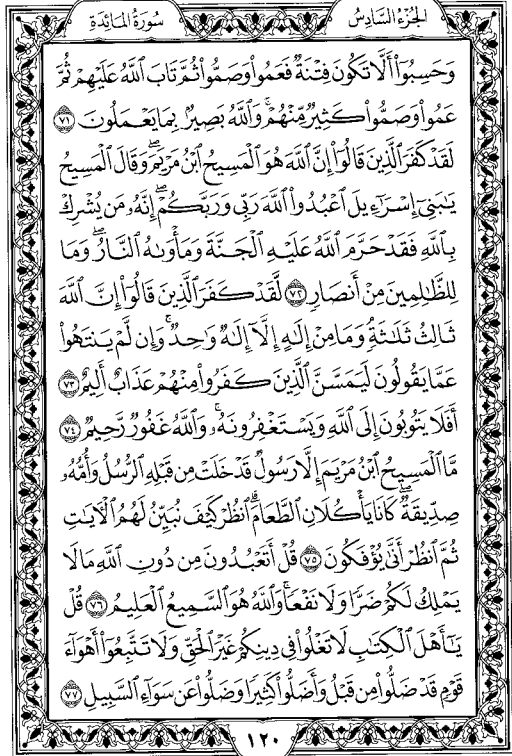 الجزء السادس
سورة المائدة
وَحَسِبُوٓا۟ أَلَّا تَكُونَ فِتْنَةٌ فَعَمُوا۟ وَصَمُّوا۟ ثُمَّ تَابَ ٱللَّهُ عَلَيْهِمْ ثُمَّ
عَمُوا۟ وَصَمُّوا۟ كَثِيرٌ مِّنْهُمْ ۚ وَٱللَّهُ بَصِيرٌۢ بِمَا يَعْمَلُونَ ٧١
لَقَدْ كَفَرَ ٱلَّذِينَ قَالُوٓا۟ إِنَّ ٱللَّهَ هُوَ ٱلْمَسِيحُ ٱبْنُ مَرْيَمَ ۖ وَقَالَ ٱلْمَسِيحُ
يَـٰبَنِىٓ إِسْرَٰٓءِيلَ ٱعْبُدُوا۟ ٱللَّهَ رَبِّى وَرَبَّكُمْ ۖ إِنَّهُۥ مَن يُشْرِكْ
بِٱللَّهِ فَقَدْ حَرَّمَ ٱللَّهُ عَلَيْهِ ٱلْجَنَّةَ وَمَأْوَىٰهُ ٱلنَّارُ ۖ وَمَا
لِلظَّـٰلِمِينَ مِنْ أَنصَارٍ ٧٢ لَّقَدْ كَفَرَ ٱلَّذِينَ قَالُوٓا۟ إِنَّ ٱللَّهَ
ثَالِثُ ثَلَـٰثَةٍ ۘ وَمَا مِنْ إِلَـٰهٍ إِلَّآ إِلَـٰهٌ وَٰحِدٌ ۚ وَإِن لَّمْ يَنتَهُوا۟
عَمَّا يَقُولُونَ لَيَمَسَّنَّ ٱلَّذِينَ كَفَرُوا۟ مِنْهُمْ عَذَابٌ أَلِيمٌ ٧٣
أَفَلَا يَتُوبُونَ إِلَى ٱللَّهِ وَيَسْتَغْفِرُونَهُۥ ۚ وَٱللَّهُ غَفُورٌ رَّحِيمٌ ٧٤
مَّا ٱلْمَسِيحُ ٱبْنُ مَرْيَمَ إِلَّا رَسُولٌ قَدْ خَلَتْ مِن قَبْلِهِ ٱلرُّسُلُ وَأُمُّهُۥ
صِدِّيقَةٌ ۖ كَانَا يَأْكُلَانِ ٱلطَّعَامَ ۗ ٱنظُرْ كَيْفَ نُبَيِّنُ لَهُمُ ٱلْـَٔايَـٰتِ
ثُمَّ ٱنظُرْ أَنَّىٰ يُؤْفَكُونَ ٧٥ قُلْ أَتَعْبُدُونَ مِن دُونِ ٱللَّهِ مَا لَا
يَمْلِكُ لَكُمْ ضَرًّا وَلَا نَفْعًا ۚ وَٱللَّهُ هُوَ ٱلسَّمِيعُ ٱلْعَلِيمُ ٧٦ قُلْ
يَـٰٓأَهْلَ ٱلْكِتَـٰبِ لَا تَغْلُوا۟ فِى دِينِكُمْ غَيْرَ ٱلْحَقِّ وَلَا تَتَّبِعُوٓا۟ أَهْوَآءَ
قَوْمٍ قَدْ ضَلُّوا۟ مِن قَبْلُ وَأَضَلُّوا۟ كَثِيرًا وَضَلُّوا۟ عَن سَوَآءِ ٱلسَّبِيلِ ٧٧
١٢٠